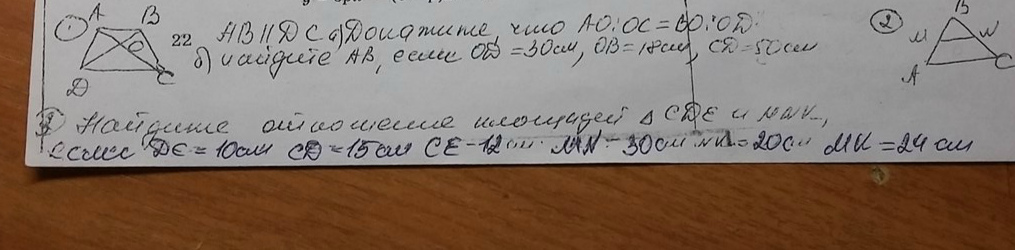 1 A B O D C 22 AB || DC а) Докажите, что AO:OC=BO:OD
б) найдите AB, если OD=30см, OB=18см, CD=50см
2 B M N A C
3 Найдите отношение площадей Δ CDE и MNK,
если DE=10см CD=15см CE-12см MN-30см NK=20см MK=24см